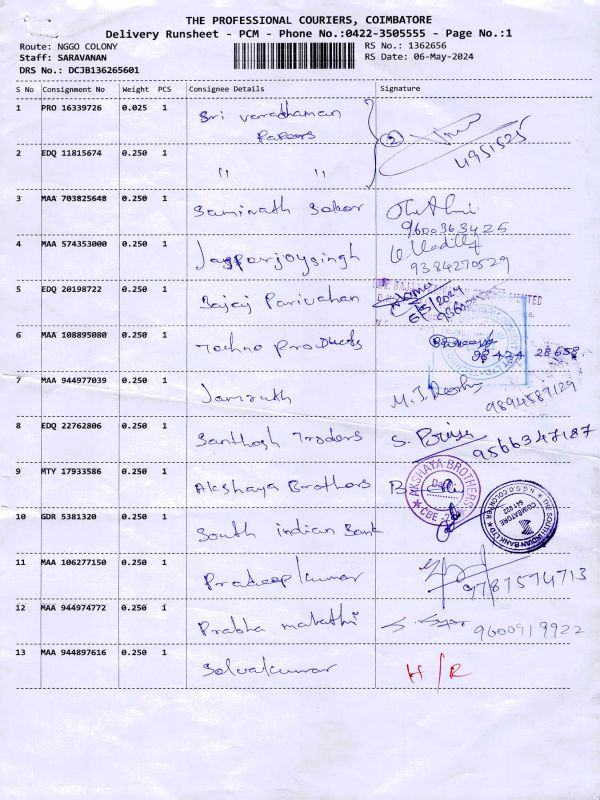 THE PROFESSIONAL COURIERS, COIMBATORE
Delivery Runsheet - PCM - Phone No.:0422-3505555 - Page No.:1
Route: NGGO COLONY RS No.: 1362656
Staff: SARAVANAN RS Date: 06-May-2024
DRS No.: DCJB136265601
S No Consignment No Weight PCS Consignee Details Signature
1 PRO 16339726 0.025 1 Sri varadhaman
Papers 2
4951525
2 EDQ 11815674 0.250 1 " "
3 MAA 703825648 0.250 1 Saminath Sekar
9600363425
4 MAA 574353000 0.250 1 Jagparjoysingh
9384270529
5 EDQ 20198722 0.250 1 Bajaj Parivahan
6/5/2024
6 MAA 108895080 0.250 1 Techno Products
98424 28658
7 MAA 944977039 0.250 1 Jamnath M.J.
9894587129
8 EDQ 22762806 0.250 1 Santhosh Traders S. Priya
9566347187
9 MTY 17933586 0.250 1 Akshaya Brothers
AKSHAYA BROTHERS
10 GDR 5381320 0.250 1 South indian Bank
THE SOUTH INDIAN BANK LTD
N.G.G.O. COLONY
COIMBATORE
641 022
11 MAA 106277150 0.250 1 Pradeep kumar
9787574713
12 MAA 944974772 0.250 1 Prabha malathi
9600919922
13 MAA 944897616 0.250 1 Selvakumar H/R